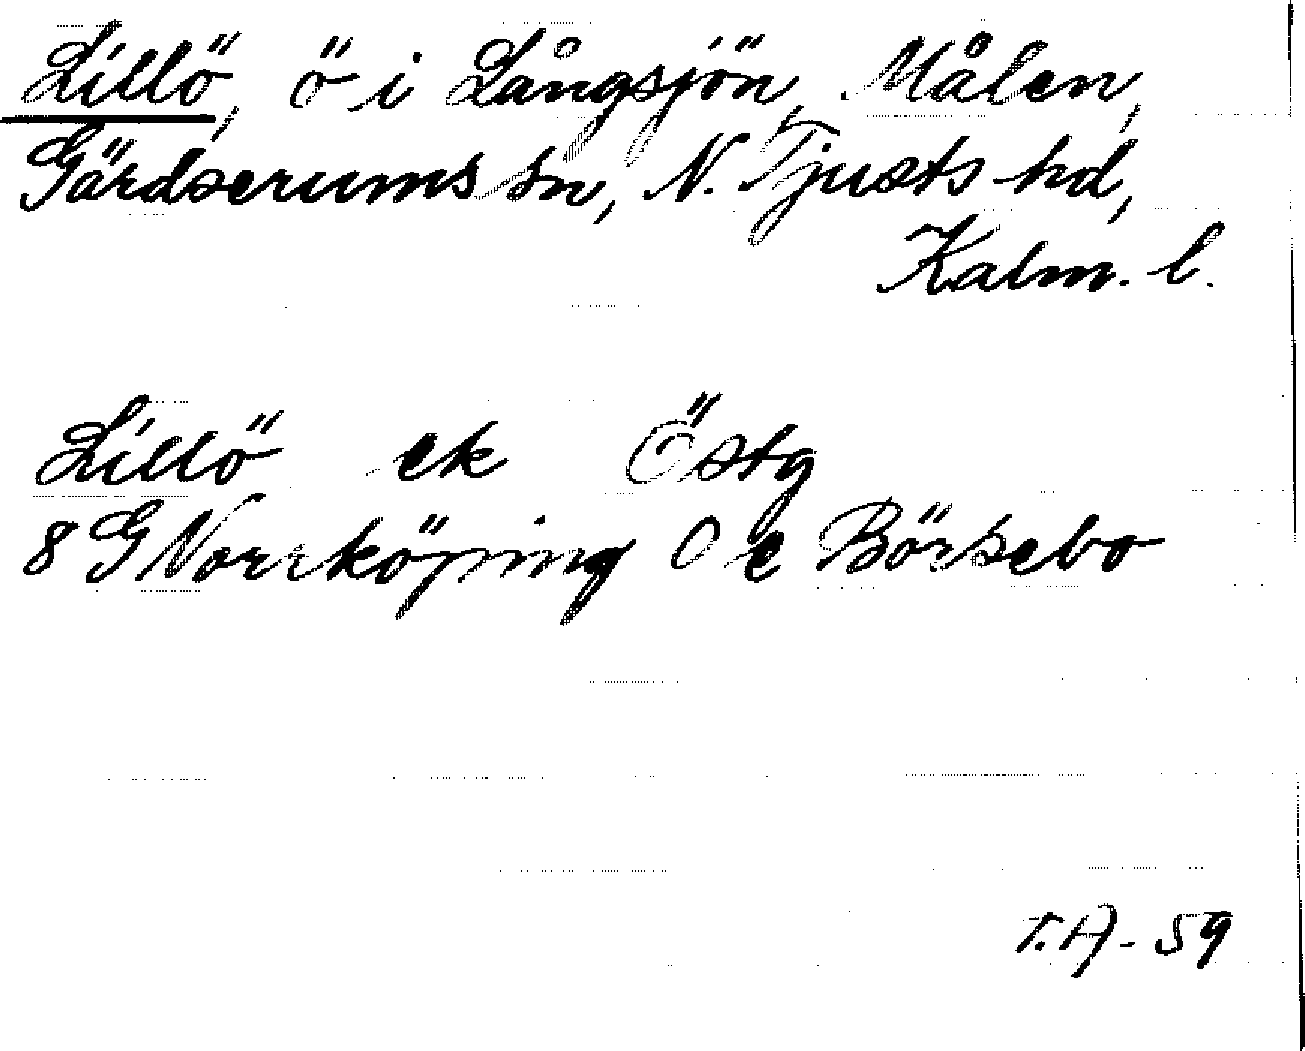 Lillö, ö i Långsjön, Målen,
Gärdserums sn, N. Tjusts hd,
Kalm. l.
Lillö ek Östg
8 G Norrköping 0 e Börsebo
T.A - 59